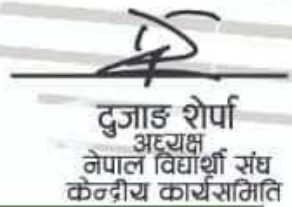 दुजाङ शेर्पा
अध्यक्ष
नेपाल विद्यार्थी संघ
केन्द्रीय कार्यसमिति